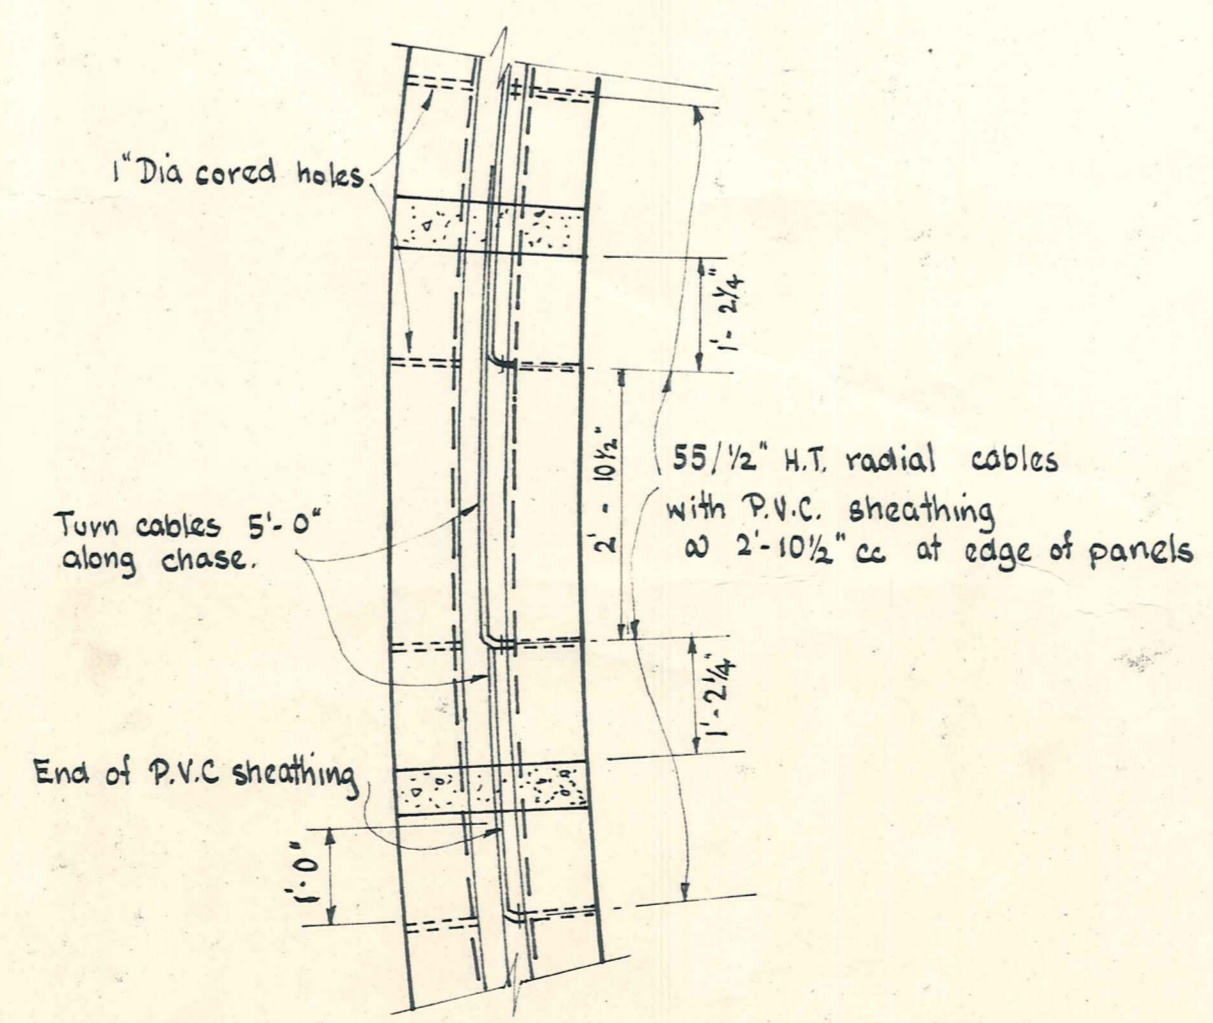 1" Dia cored holes
1'- 2¼"
2' - 10½"
55/½" H.T. radial cables
with P.V.C. sheathing
@ 2'-10½" cc at edge of panels
Turn cables 5'-0"
along chase.
1'-2¼"
End of P.V.C sheathing
1'-0"